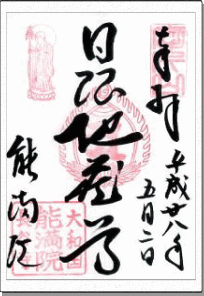 奉拝
平成廿八年
五月二日
日限地蔵尊
能満院
大和国
能満院
長谷寺